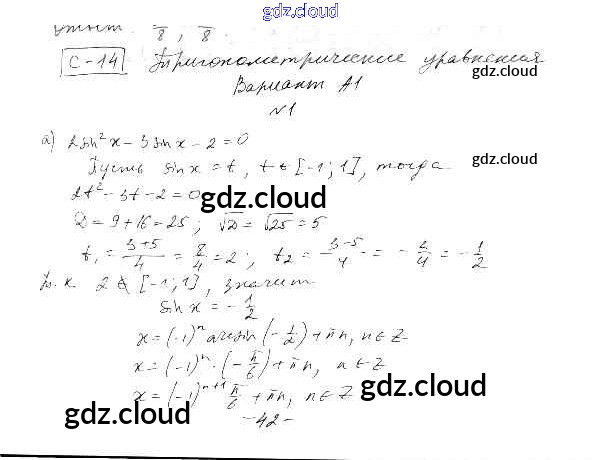 gdz.cloud
π/8, π/8.
С-14 Тригонометрические уравнения
gdz.cloud
Вариант А1
№1
а) 2sin²x - 3sinx - 2 = 0
Пусть sinx = t, t ∈ [-1; 1], тогда
gdz.cloud
2t² - 3t - 2 = 0
gdz.cloud
D = 9 + 16 = 25; √D = √25 = 5
t₁ = (3+5)/4 = 8/4 = 2; t₂ = (3-5)/4 = -2/4 = -1/2
Т.к. 2 ∉ [-1; 1], значит
sin x = -1/2
x = (-1)ⁿ arcsin(-1/2) + πn, n ∈ Z
x = (-1)ⁿ · (-π/6) + πn, n ∈ Z
x = (-1)ⁿ⁺¹ π/6 + πn, n ∈ Z
gdz.cloud
gdz.cloud
-42-